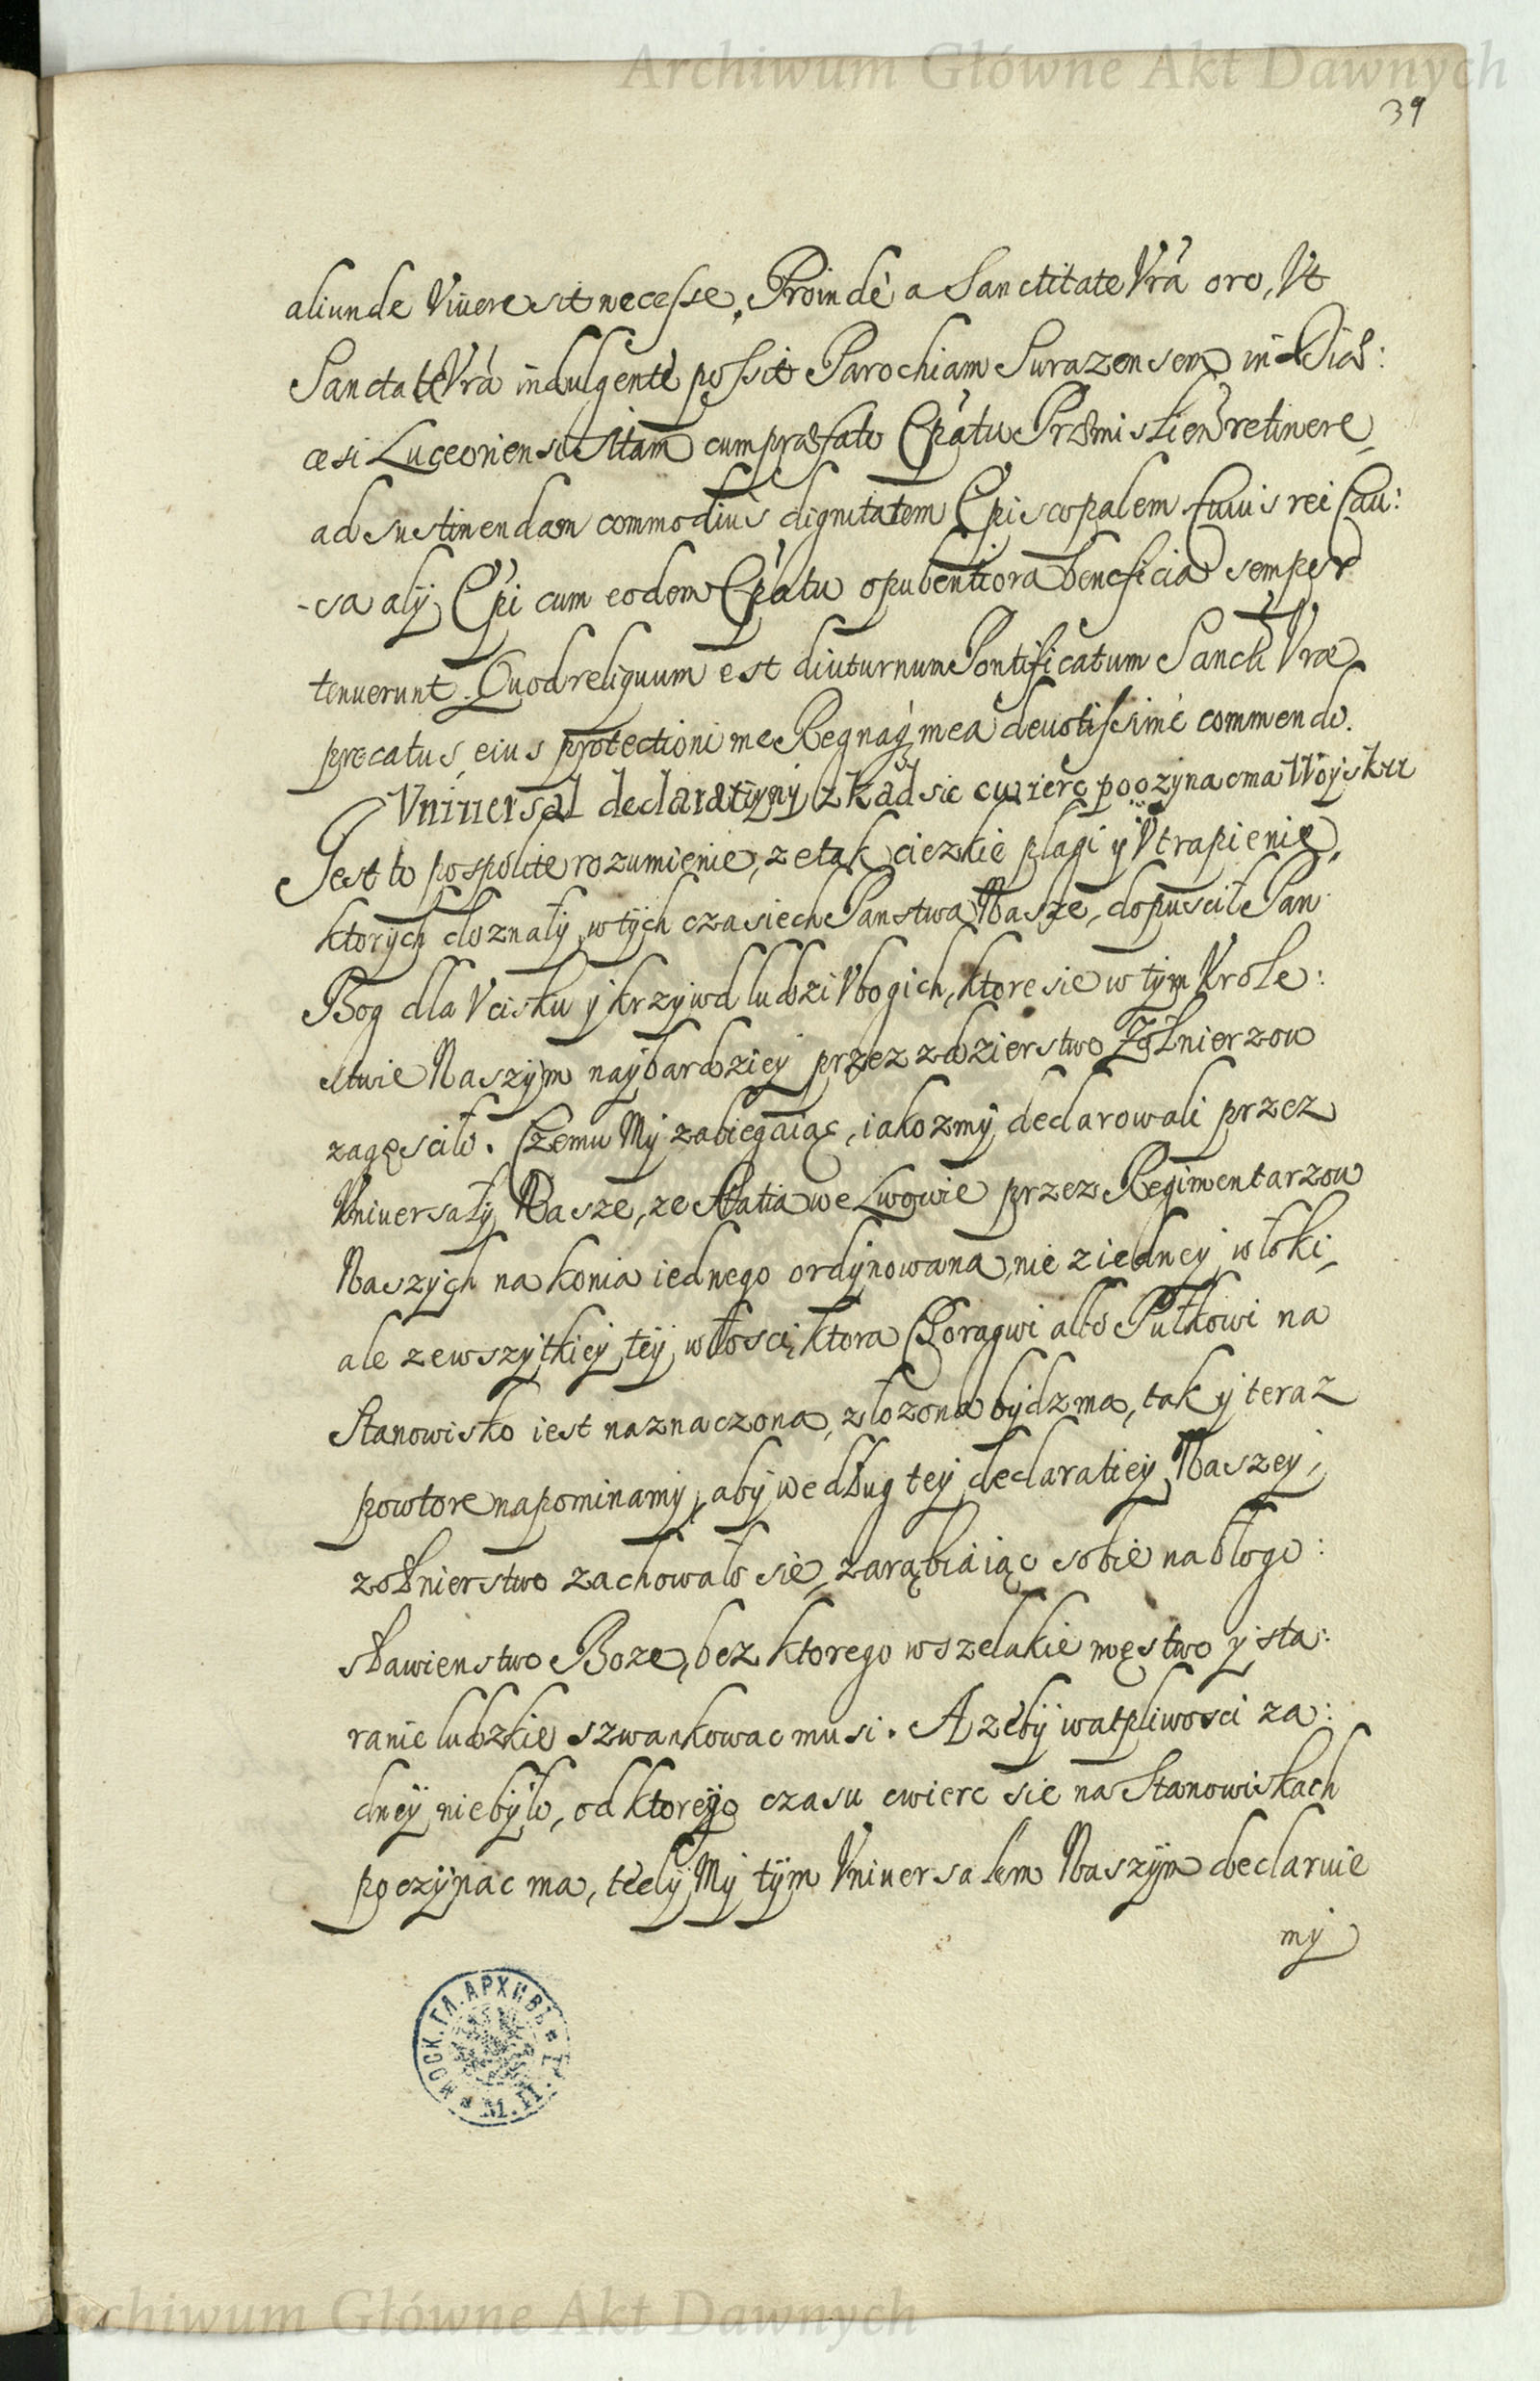 Archiwum Główne Akt Dawnych
39
aliunde Viuere sit necesse. Proindè a Sanctitate Vrã oro, Vt
Sanctate Vrã indulgente possit Parochiam Surazensem in Diæ:
cesi Luceoriensi sitam cum præfato Epãtu Præmislien̄ retinere,
ad sustinendam commodius dignitatem Episcopalem Cuius rei Cau:
-sa alÿ Epĩ cum eodem Epãtu opubentiora beneficia semper
tenuerunt. Quod reliquum est diuturnum Pontificatum Sanctĩ Vræ
precatus, eius protectioni me Regnaq̃ mea deuotissimè commendo.
Vniuersal declaratiyny zkąd sie cwierc poczynac ma Woysku
Jest to pospolite rozumienie, ze tak ciezkie plagi y Vtrapienie,
ktorych doznały w tych czasiech Panstwa Nasze, dopuscił Pan
Bog dla Vcisku y krzywd ludzi Vbogich, ktore sie w tym Krole:
stwie Naszym naybardziey przez zdzierstwo Zołnierzow
zagęsciło. Czemu My zabiegaiąc, iakozmy declarowali przez
Vniuersały Nasze, ze statia we Lwowie przez Regimentarzow
Naszych na konia iednego ordynowana, nie z iedney włoki,
ale ze wszytkiey tey włosci, ktora Chorągwi albo Pułkowi na
Stanowisko iest naznaczona, złozona bydz ma, tak y teraz
powtore napominamy, aby według tey declaratiey Naszey,
zołnierstwo zachowało sie, zarąbiaiąc sobie na błogo:
sławienstwo Boze, bez ktorego wszelakie męstwo y sta:
ranie ludzkie szwankowac musi. A zeby wątpliwosci za:
dney nie było, od ktorego czasu cwierc sie na Stanowiskach
poczynac ma, tedy My tym Vniuersałem Naszym declaruie
my
МОСК. ГЛ. АРХИВЪ
Archiwum Główne Akt Dawnych